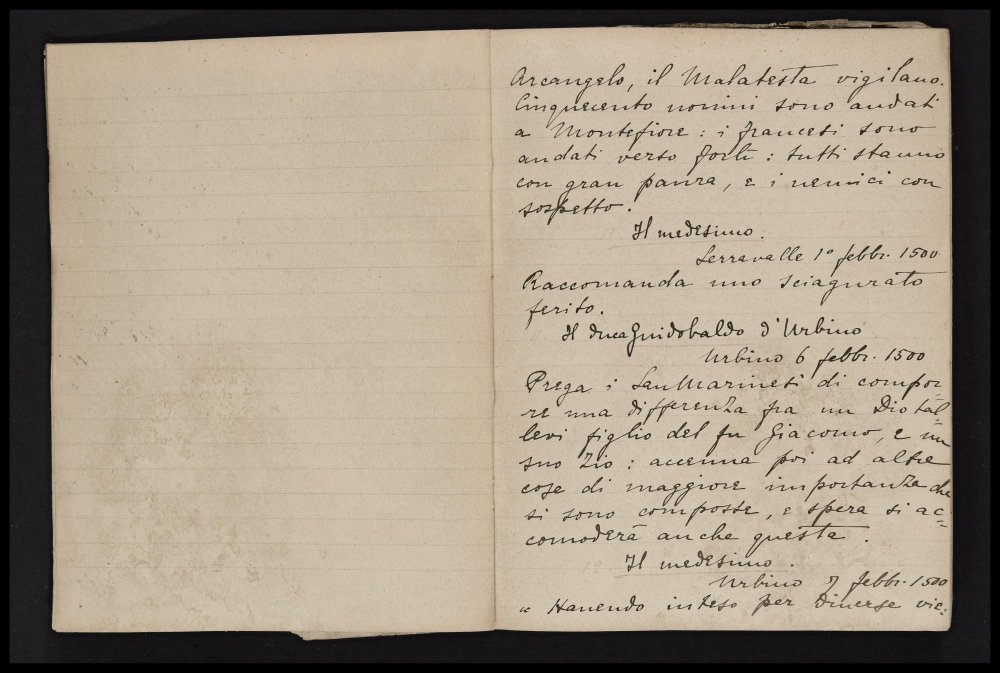 Arcangelo, il Malatesta vigilano.
Cinquecento uomini sono andati
a Montefiore : i francesi sono
andati verso Forlì : tutti stanno
con gran paura, e i nemici con
sospetto.
Il medesimo.
Serravalle 1º febbr. 1500
Raccomanda uno sciagurato
ferito.
Il duca Guidobaldo d'Urbino
Urbino 6 febbr. 1500
Prega i San Marinesi di compor
re una differenza fra un Diotal=
levi figlio del fu Giacomo, e un
suo zio : accenna poi ad altre
cose di maggiore importanza che
si sono composte, e spera si ac=
comoderà anche questa.
Il medesimo.
Urbino 7 febbr. 1500
" Havendo inteso per diverse vie: